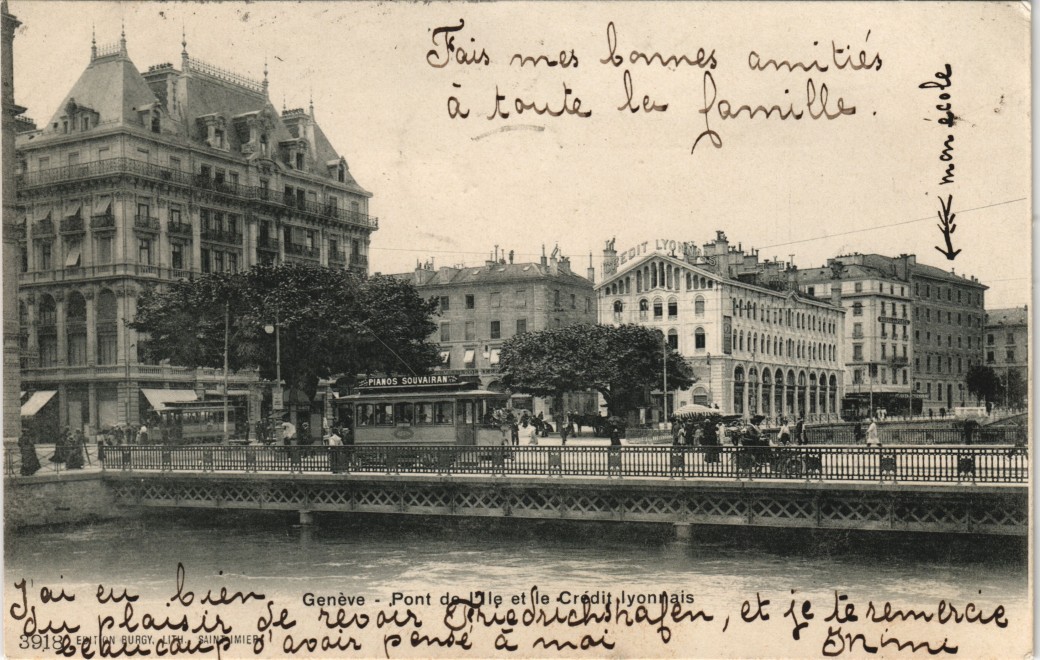 Fais mes bonnes amitiés
à toute la famille.
mon école
CREDIT LYONN
PIANOS SOUVAIRAN
J'ai eu bien
Genève - Pont de l'Ile et le Crédit lyonnais
du plaisir de revoir Friedrichshafen, et je te remercie
3918 EDITION BURGY, LITH. SAINT-IMIER
beaucoup d'avoir pensé à moi
Mimi